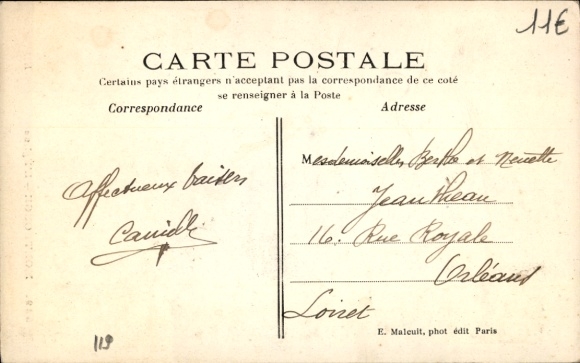 11€
CARTE POSTALE
Certains pays étrangers n'acceptant pas la correspondance de ce coté
se renseigner à la Poste
Correspondance
Adresse
Affectueux baisers
Camille
Mesdemoiselles Berthe et Nenette
Jeantheau
16. Rue Royale
Orléans
Loiret
E. Malcuit, phot édit Paris
119